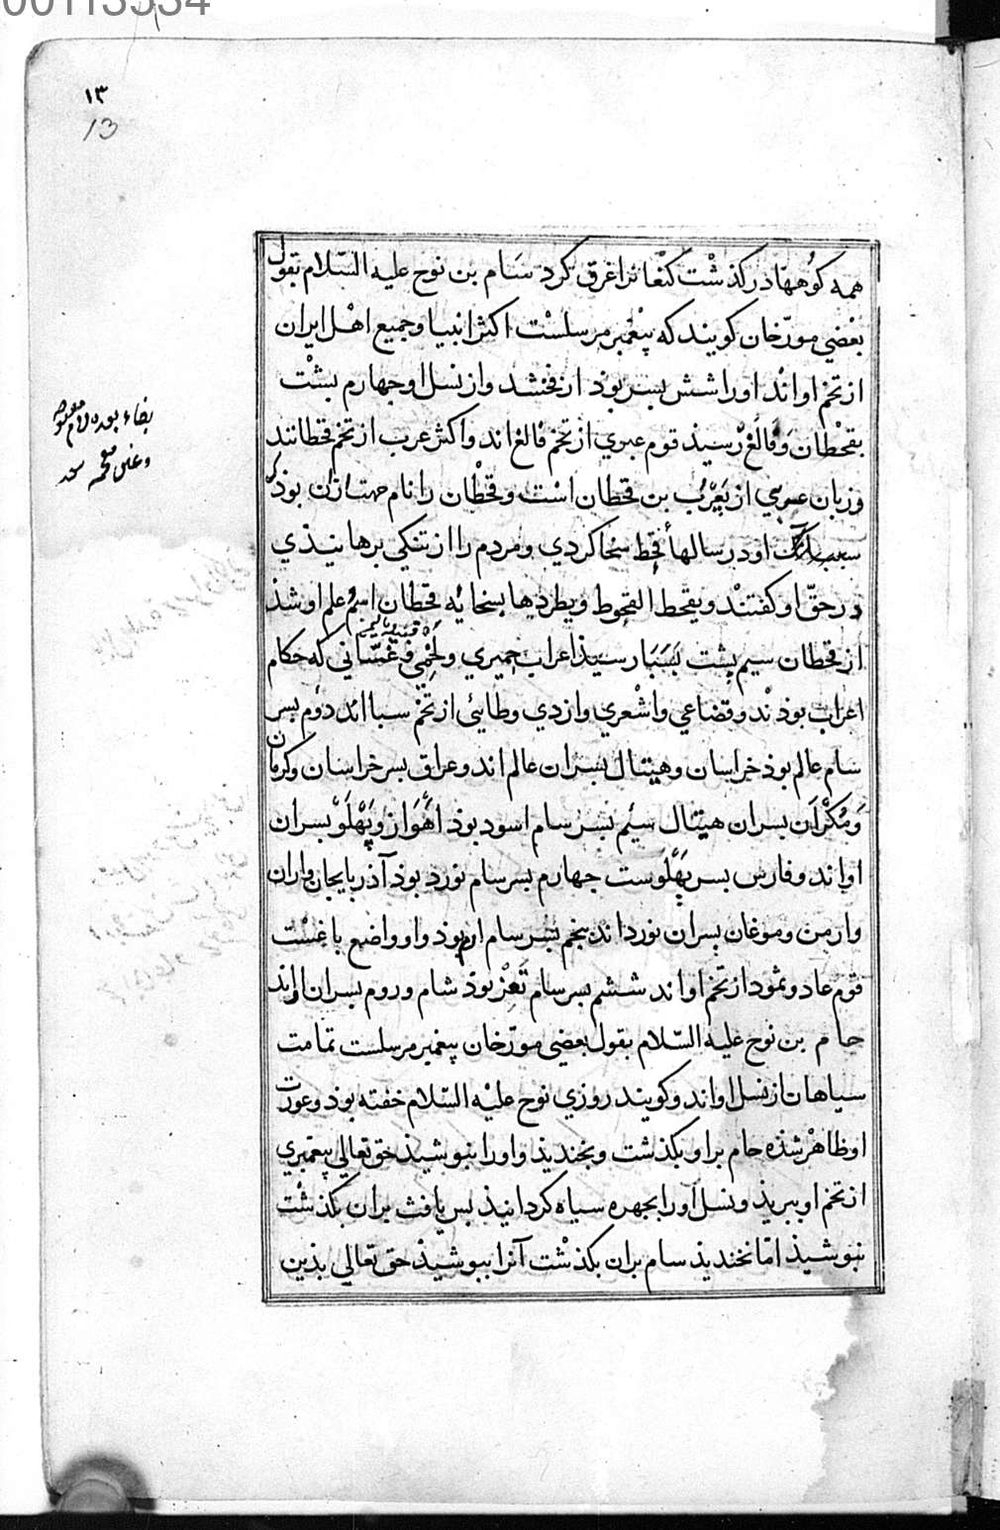 00113534
١٣
13
همه کوهها در کذشت کنعانرا غرق کرد سام بن نوح علیه السّلام بقول
بعضی مورّخان کویند که پیغمبر مرسلست اکثر انبیا و جمیع اهل ایران
از تخم اواند او را شش بسر بوذ ارفخشد واز نسل او چهارم بشت
بقحطان و فالغ رسیذ قوم عبری از تخم فالغ اند واکثر عرب از تخم قحطانند
وزبان عربی از یعرب بن قحطان است وقحطان را نام بوذ که
او در سالها قحط سخا کردی و مردم را از تنکی برهانیذی
در حقّ او کفتند ویقحط القحوط ویطردها بسخایه قحطان اسم علم او شذ
از قحطان سیم بشت بسبا رسیذ اعراب حمیری ولخمی غسّانی که حکام
اعراب بوذند وقضاعی واشعری وازدی وطایی از تخم سبا اند دوم بسر
سام عالم بوذ خراسان وهیتال بسران عالم اند وعراق بسر خراسان وکرمان
ومکران بسران هیتال سیم بسر سام اسود بوذ اهواز وپهلو بسران
اواند وفارس بسر پهلوست جهارم بسر سام نورد بوذ آذربایجان واران
وارمن وموغان بسران نورد اند پنجم بسر سام ارم بوذ واو واضع باغست
قوم عاد وثمود از تخم اواند ششم بسر سام بوذ شام وروم بسران اواند
حام بن نوح علیه السّلام بقول بعضی مورّخان پیغمبر مرسلست تمامت
سیاهان از نسل اواند وکویند روزی نوح علیه السّلام خفته بوذ وعورت
او ظاهر شذه حام بر او بکذشت وبخندیذ واورا نبوشیذ حق تعالی پیغمبری
از تخم او ببریذ ونسل اورا بجهره سیاه کردانیذ بس یافث بران بکذشت
نبوشیذ امّا نخندیذ سام بران بکذشت آنرا ببوشیذ حق تعالی بذین